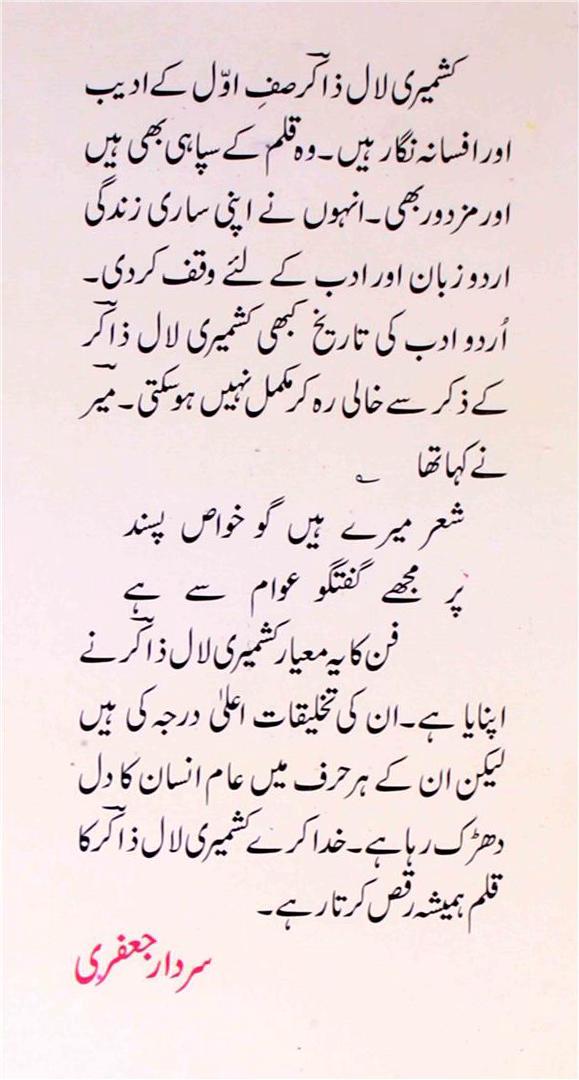 کشمیری لال ذاکرؔ صفِ اوّل کے ادیب
اور افسانہ نگار ہیں۔ وہ قلم کے سپاہی بھی ہیں
اور مزدور بھی۔ انہوں نے اپنی ساری زندگی
اردو زبان اور ادب کے لئے وقف کر دی۔
اُردو ادب کی تاریخ کبھی کشمیری لال ذاکرؔ
کے ذکر سے خالی رہ کر مکمل نہیں ہو سکتی۔ میرؔ
نے کہا تھا ؎
شعر میرے ہیں گو خواص پسند
پر مجھے گفتگو عوام سے ہے
فن کا یہ معیار کشمیری لال ذاکرؔ نے
اپنایا ہے۔ ان کی تخلیقات اعلیٰ درجہ کی ہیں
لیکن ان کے ہر حرف میں عام انسان کا دل
دھڑک رہا ہے۔ خدا کرے کشمیری لال ذاکرؔ کا
قلم ہمیشہ رقص کرتا رہے۔
سردار جعفری